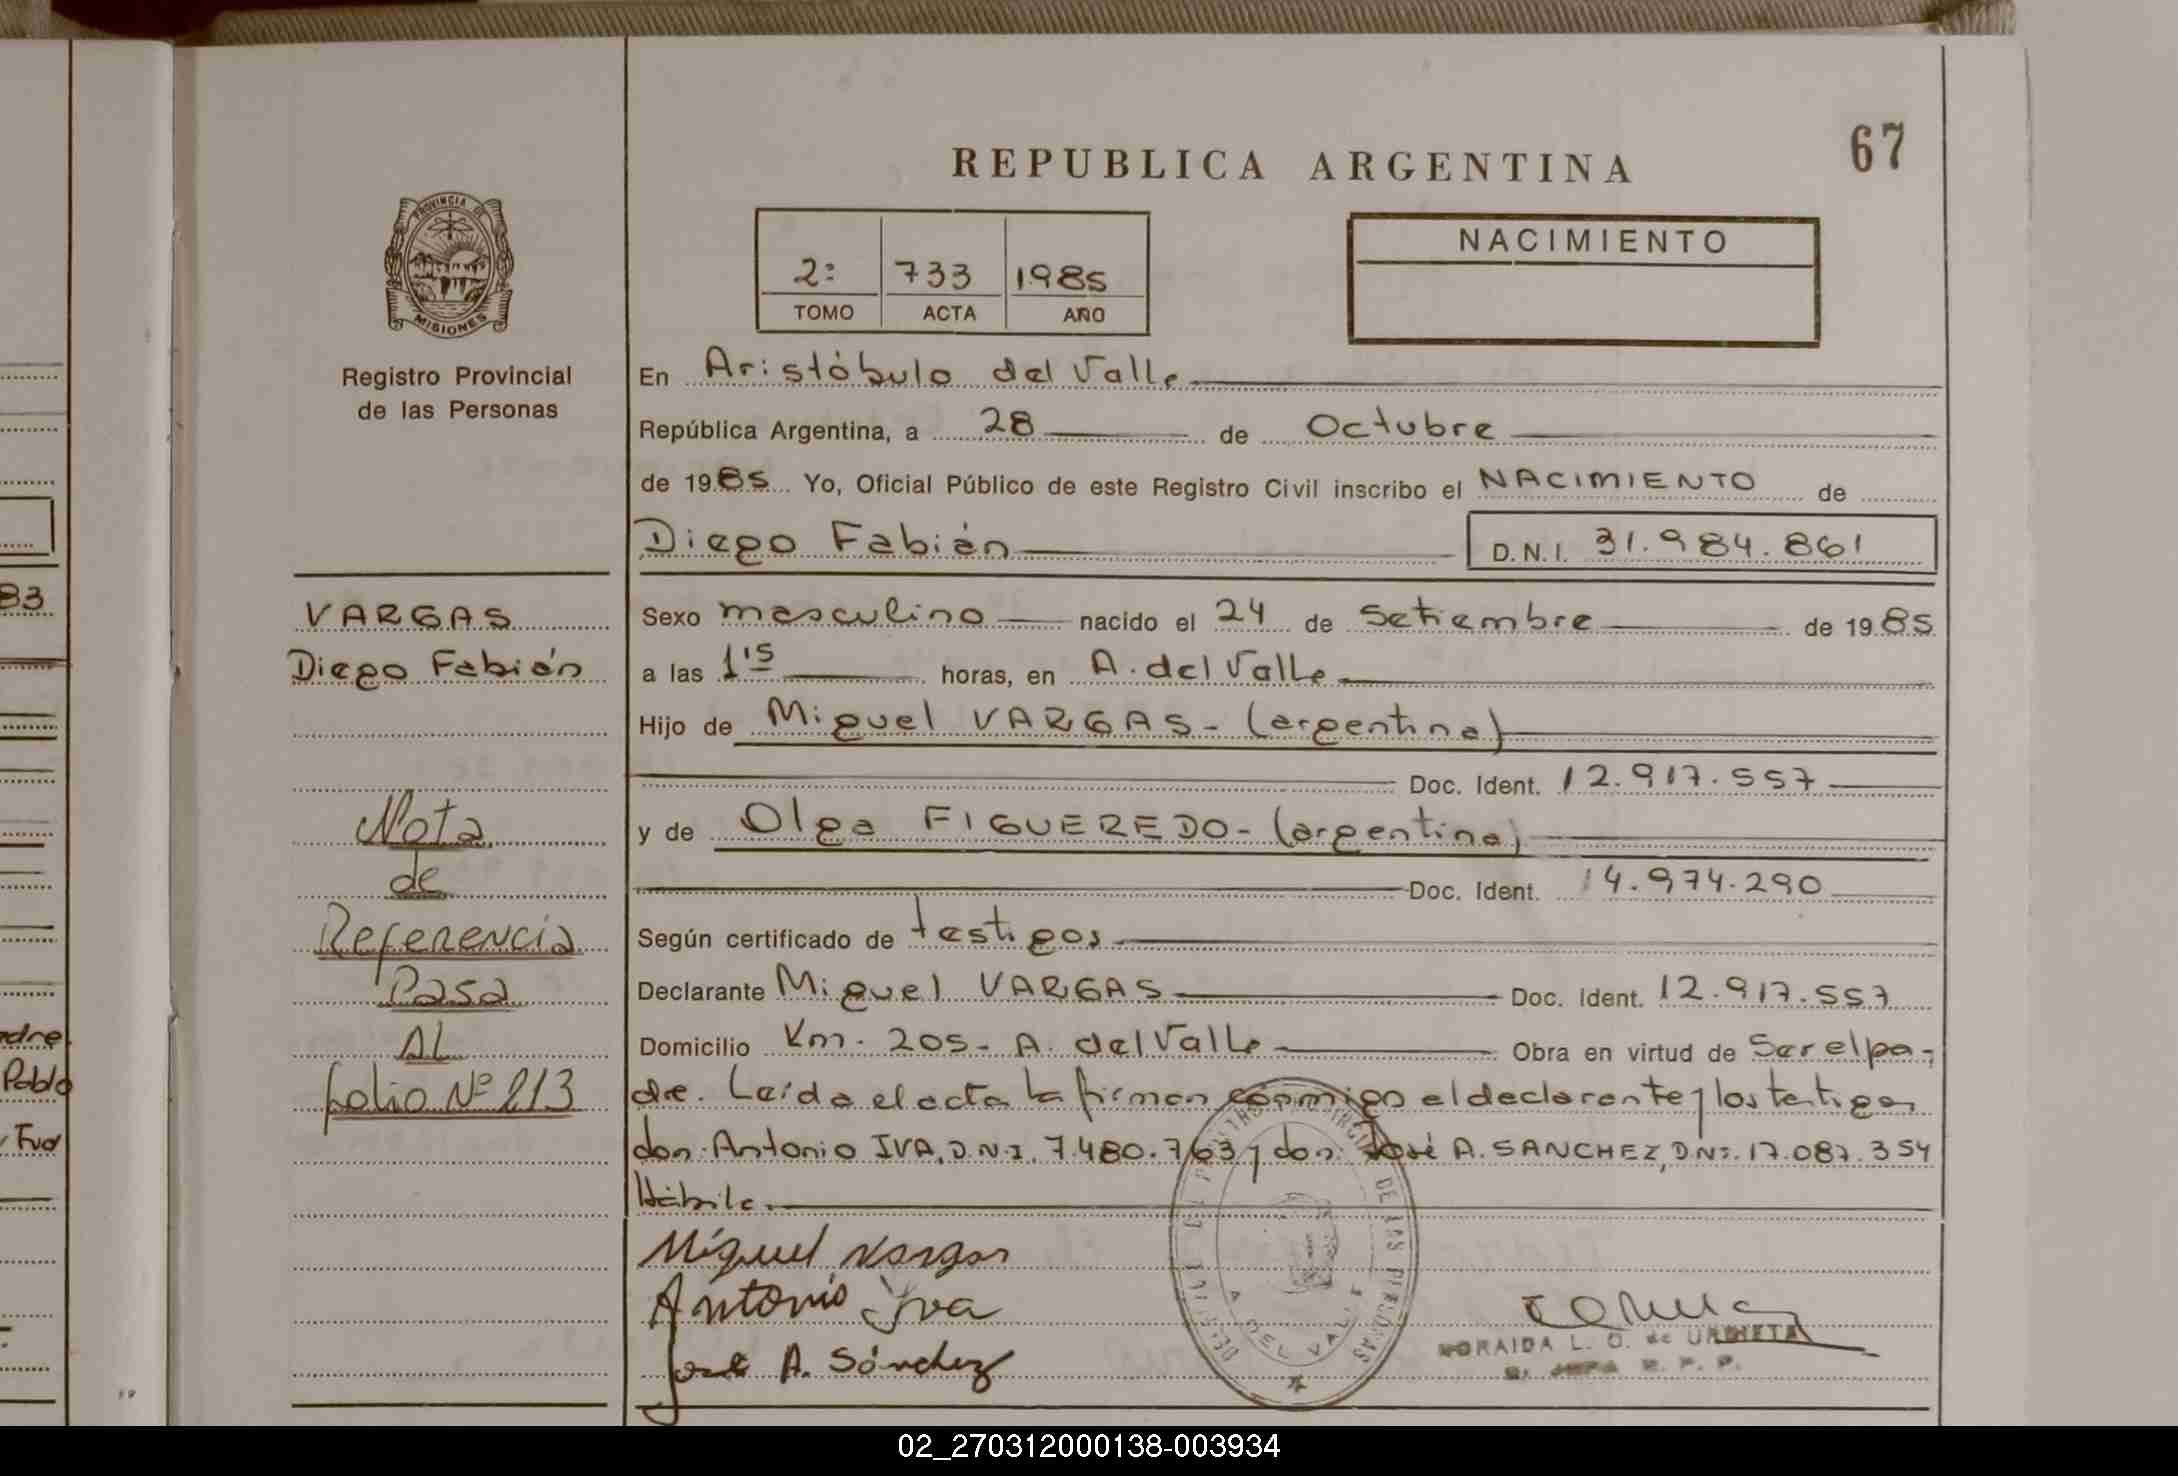 67
REPUBLICA ARGENTINA
PROVINCIA DE
MISIONES
Registro Provincial
de las Personas
2º 733 1985
TOMO ACTA AÑO
NACIMIENTO
En Aristóbulo del Valle
República Argentina, a 28 de Octubre
de 1985 Yo, Oficial Público de este Registro Civil inscribo el NACIMIENTO de
Diego Fabián D.N.I. 31.984.861
VARGAS
Diego Fabián
Sexo masculino nacido el 24 de Setiembre de 1985
a las 1'15 horas, en A. del Valle
Hijo de Miguel VARGAS - (argentina)
Doc. Ident. 12.917.557
y de Olga FIGUEREDO - (argentina)
Doc. Ident. 14.974.290
Según certificado de testigos
Declarante Miguel VARGAS Doc. Ident. 12.917.557
Domicilio Km. 205 - A. del Valle Obra en virtud de Ser el pa-
dre. Leída el acta la firman conmigo el declarante y los testigos
don: Antonio IVA, D.N.I. 7.480.763 y don: José A. SANCHEZ, DNI. 17.087.354
Hábile.
Nota
de
Referencia
Pasa
AL
folio Nº 213
Miguel Vargas
Antonio Iva
José A. Sánchez
A. DEL VALLE
NORAIDA L. O. de URDIETA
R. P. P.
83
adre
Pablo
02_270312000138-003934